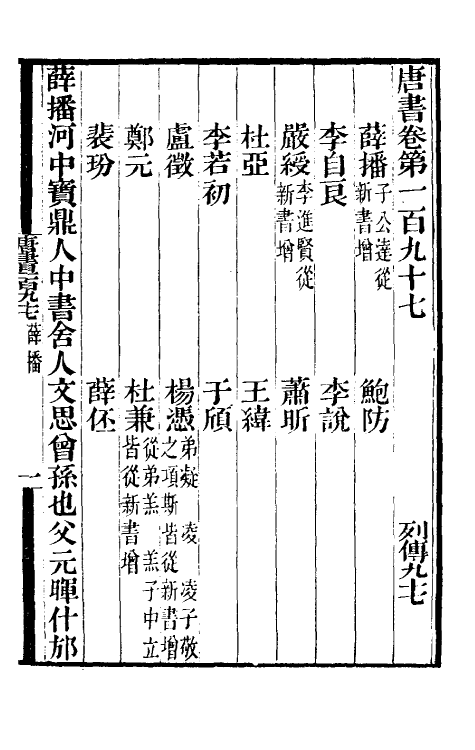 唐書卷第一百九十七 列傳九七
薛播子公達從新書增 鮑防
李自良 李說
嚴綬李進賢從新書增 蕭昕
杜亞 王緯
李若初 于頎
盧徵 楊憑弟凝 凌 凌子敬之項斯皆從新書增
鄭元 杜兼從弟羔 羔子中立皆從新書增
裴玢 薛伾
薛播河中寶鼎人中書舍人文思曾孫也父元暉什邡
唐書一百九七 薛播 一